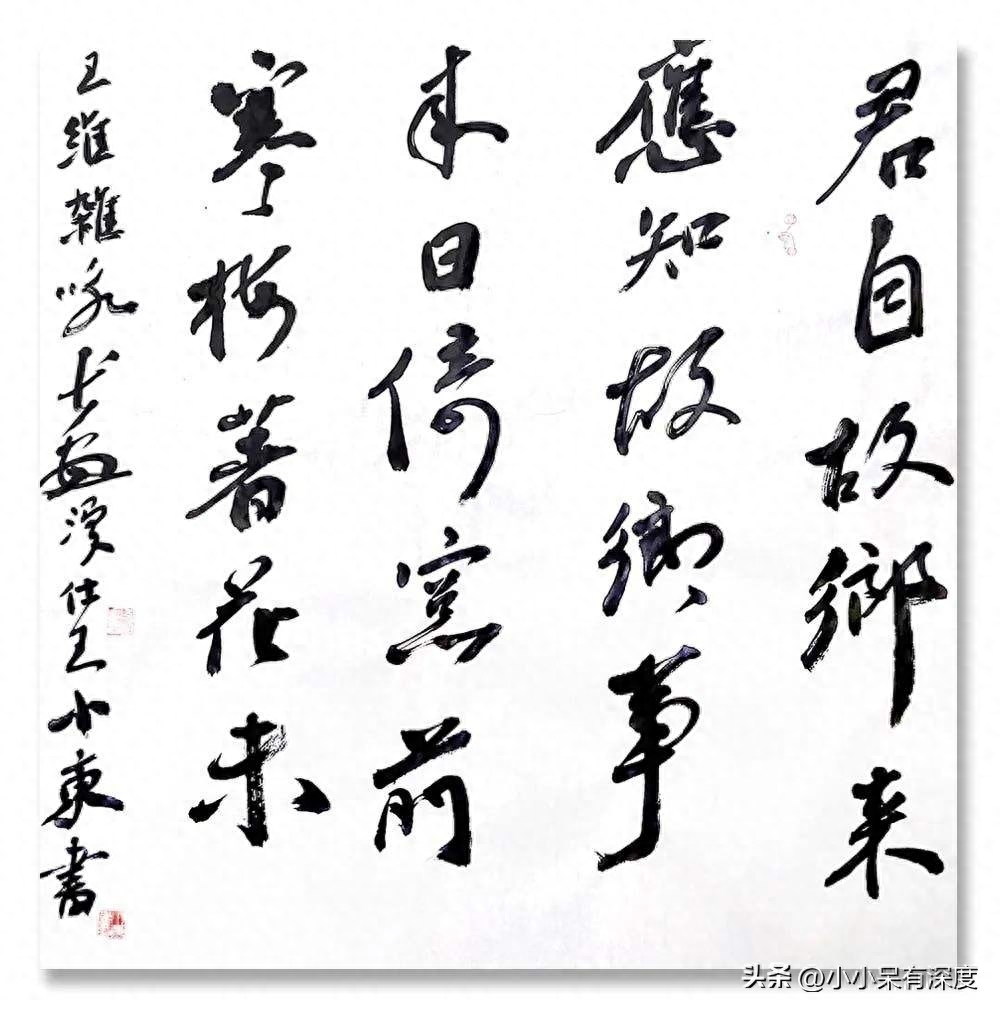 君自故鄉来
應知故鄉事
来日倚窓前
寒梅著花未
王維雜咏王小東書
头条 @小小呆有深度